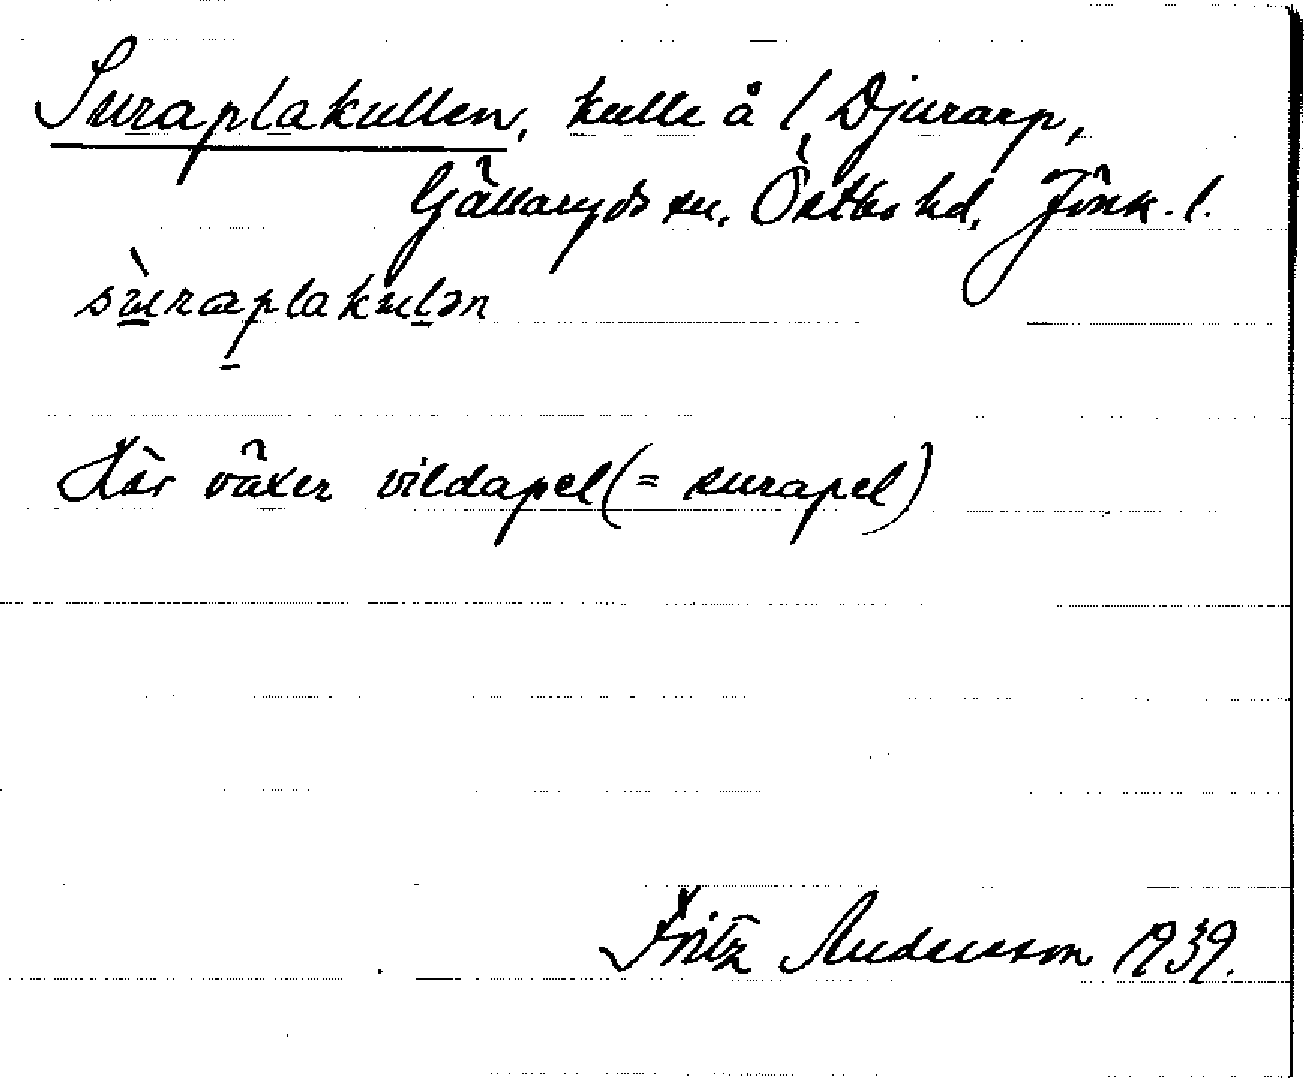 Suraplakullen, kulle å l. Djurarp,
Gällaryds sn, Östbo hd, Jönk. l.
sùraplakulən
Här växer vildapel (= surapel)
Fritz Andersson 1939.